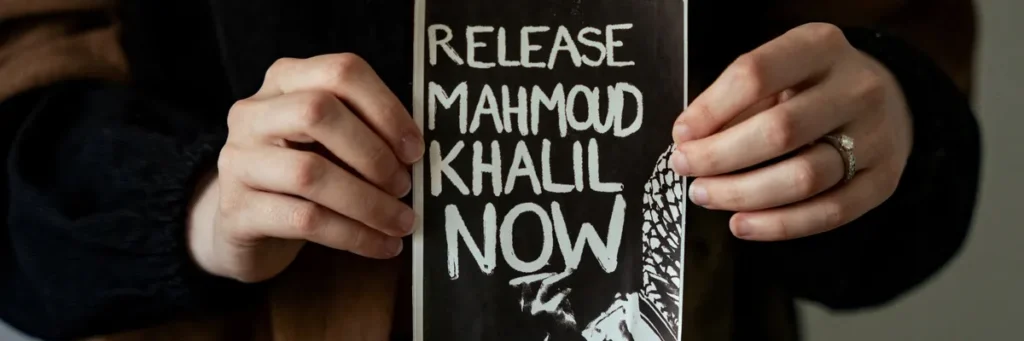 RELEASE
MAHMOUD
KHALIL
NOW